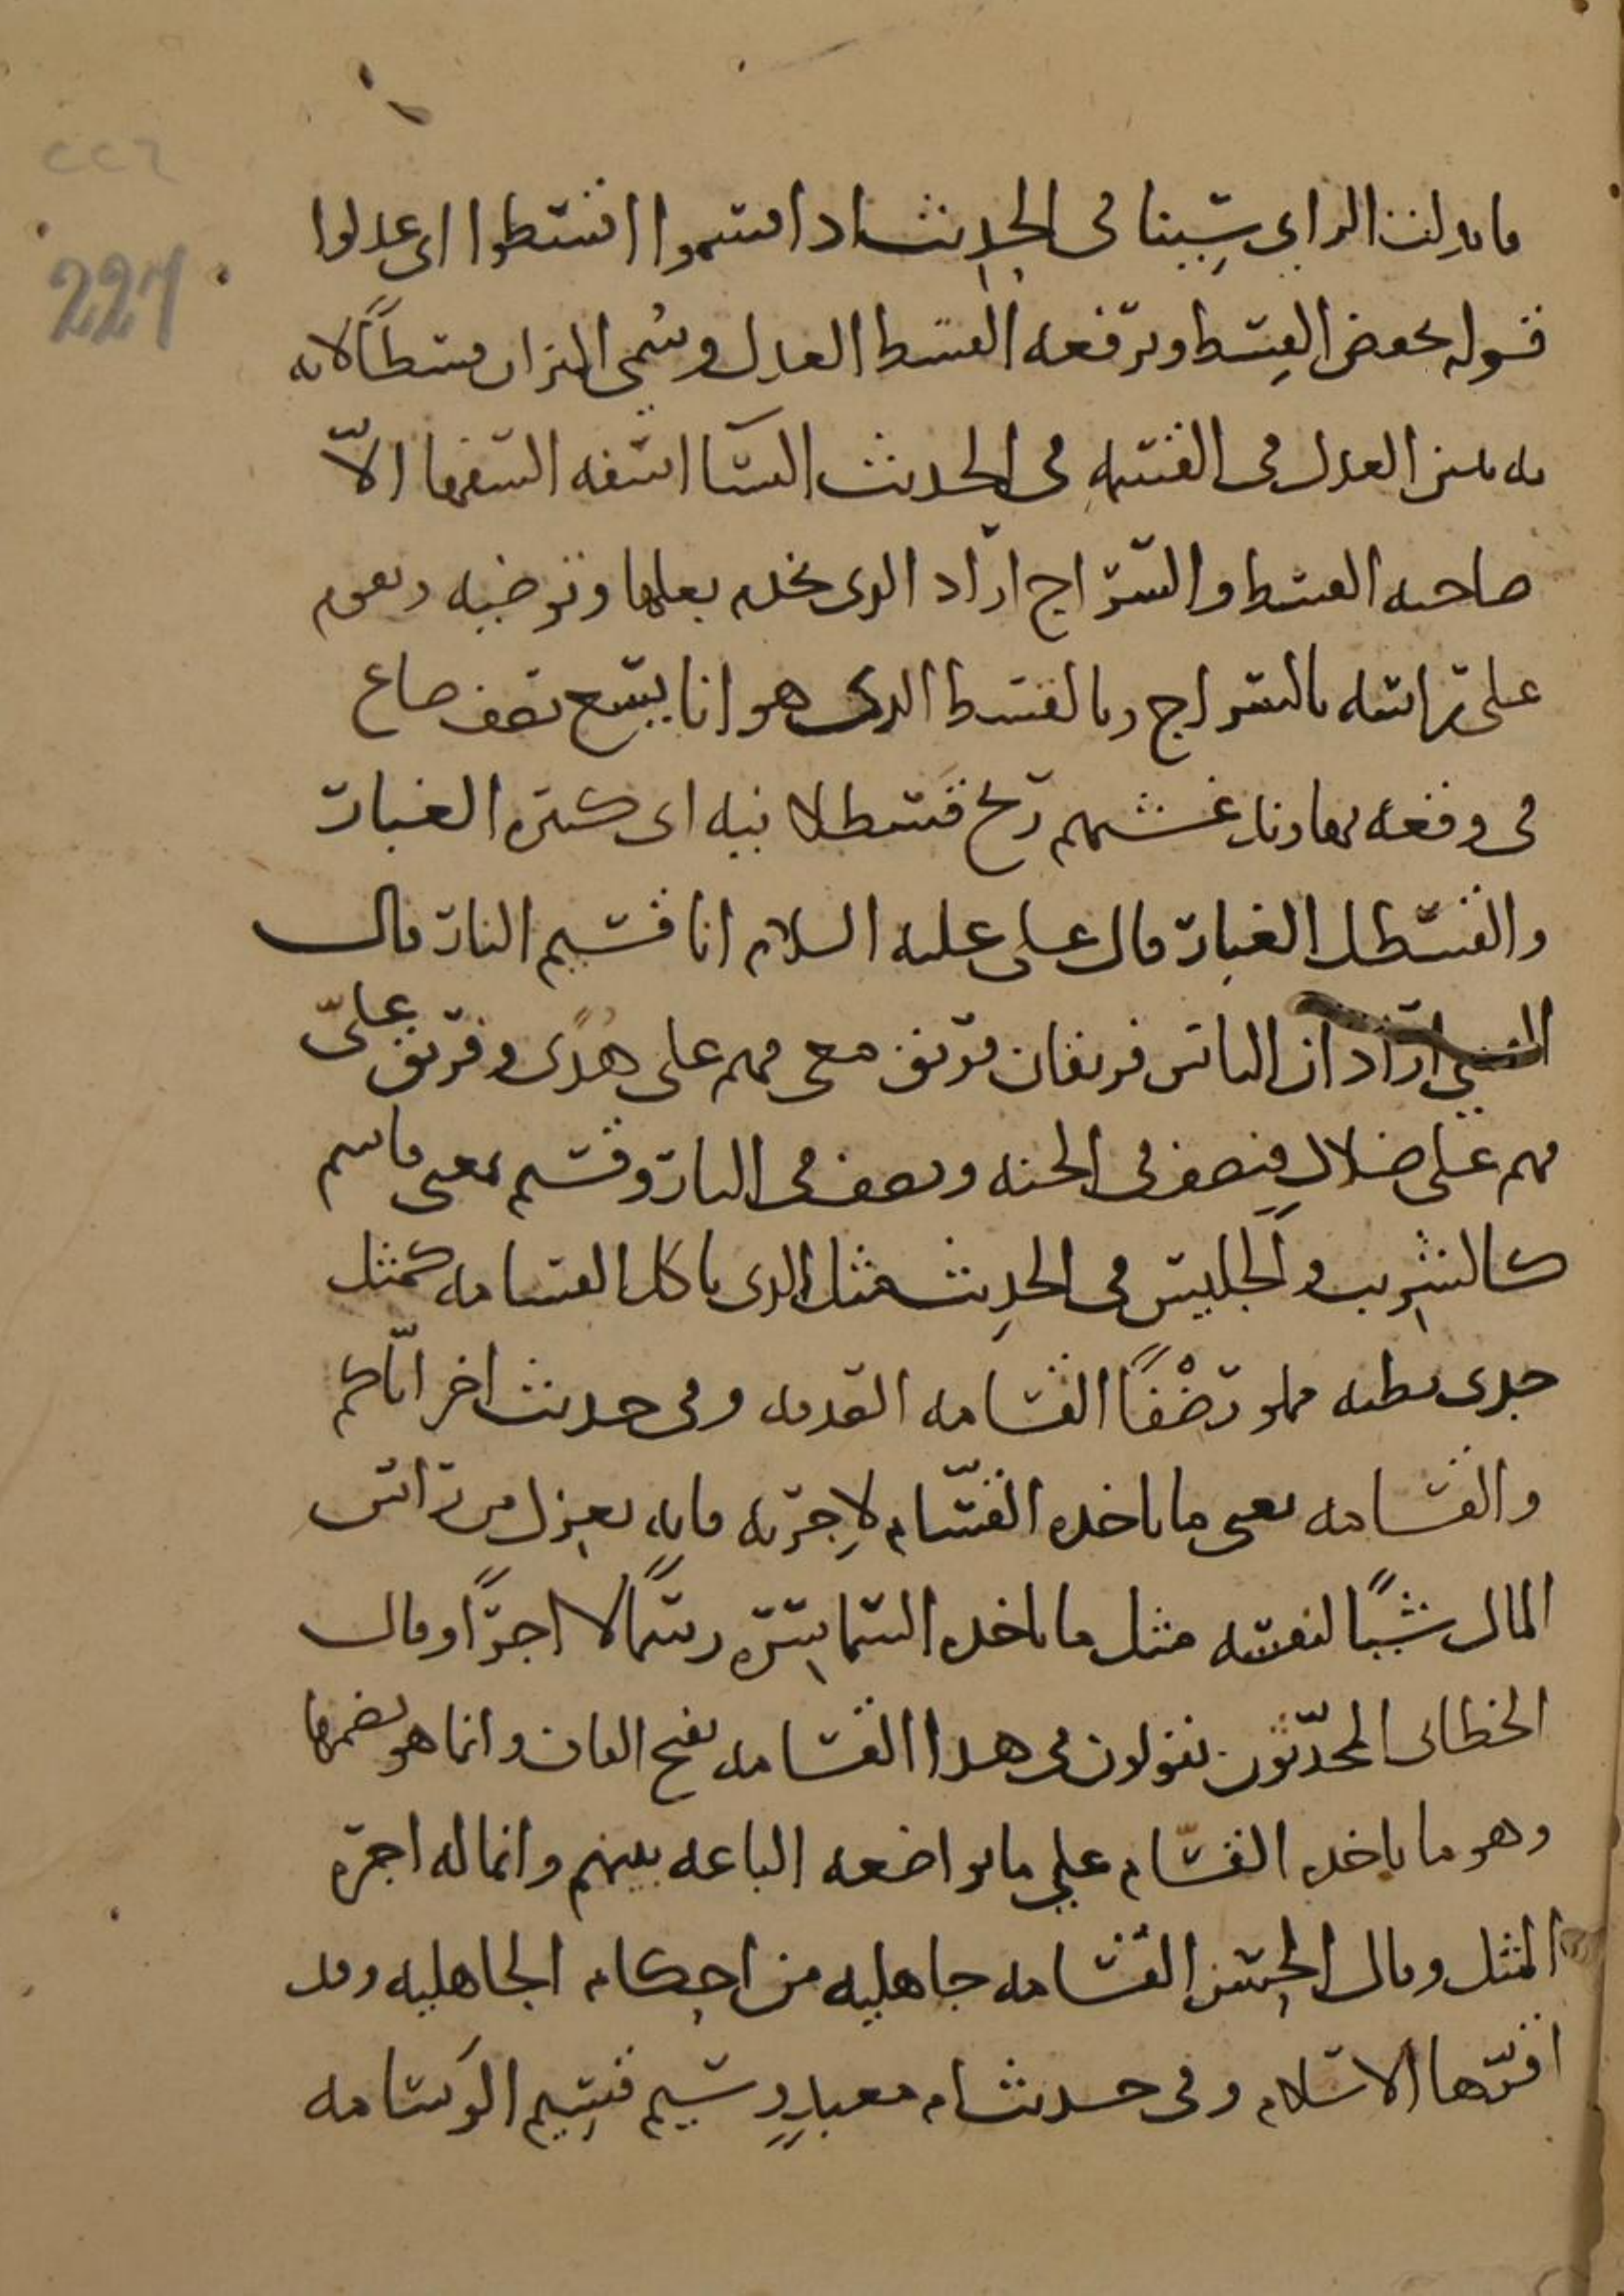 ٢٢٦
227
فابدلت الراي سينا في الحديث اذا قسموا اقسطوا اي عدلوا
قوله يخفض القسط ويرفعه القسط العدل وسمي الميزان قسطًا لانه
به يتبين العدل في القسمه في الحديث النسا اسفه السفها الّا
صاحبه القسط والسراج اراد الدى تخدم بعلها وتوضيه وتقوم
على راسه بالسراج وبالقسط الدى هو انا يسع نصف صاع
في وقعه نهاوند غشيهم ريح قسطلانيه اى كثيره الغبار
والقسطل الغبار قال على عليه السلام انا قسيم النار قال
القتيبي اراد ان الناس فريقان فريق معى فهم على هدًى وفريق علىّ
فهم على ضلالٍ فنصف في الجنه ونصف في النار وقسيم بمعنى قاسم
كالشريب والجليس في الحديث مثل الدى ياكل القسامه كمثل
جدى بطنه مملو رضْفًا القسامه الصدقه وفى حديث اخر ايّاكم
والقسامه يعنى ما ياخده القسّام لاجرته فانه يعزل من راس
المال شيًا لنفسه مثل ما ياخده السماسره رسمًا لا اجرًا وقال
الخطابى المحدّثون يقولون في هدا القسامه بفتح القاف وانما هو بضمها
وهو ما ياخده القسّام على ما تواضعه الباعه بينهم وانما له اجره
المثل وقال الحسن القسامه جاهليه من احكام الجاهليه وقد
اقرّها الاسلام وفى حديث ام معبدٍ وسيم قسيم الوسامه